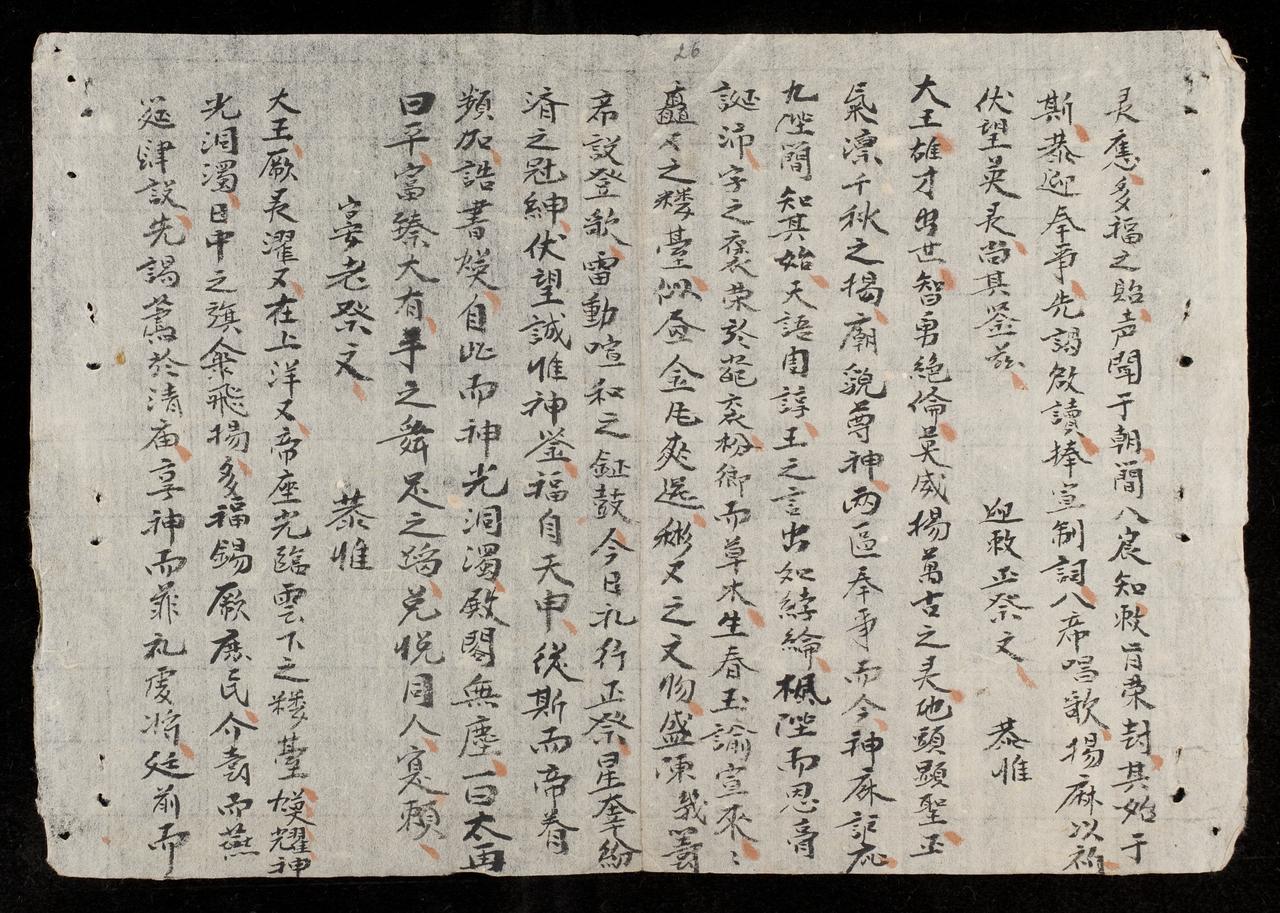 26
灵應多福之貽声聞于朝簡八宸知敕旨荣封其始于
斯恭迎奉事先謁啟讀捧宣制詞八席唱歌揚庥以祈
伏望英灵尚其鉴茲
迎敕正祭文 恭惟
大王雄才出世智勇絶倫英威揚萬古之灵地頭顯聖正
氣凛千秋之揚廟貌尊神两區奉事而今神庥記应
九陛簡知其始天語申諄王之言出如綍綸楓陛而恩膏
誕沛字之褒荣於袞枌鄉而草木生春玉諭宣來〻
矗〻之楼臺似叠金凡爽選彬〻之文物盛陳幾
希設登歌雷動喧和之鉦鼓今日礼行正祭星奔紛
濟之冠紳伏望誠惟神鉴福自天申从斯而帝眷
頻加誥書煥自此而神光洞濁殿閣無塵一曰太再
曰平富臻大有手之舞足之蹈兑悦同人寔賴
宴老祭文 恭惟
大王厥灵濯〻在上洋〻帝座光臨雲下之楼臺煥耀神
光洞濁日中之旗傘飛揚多福錫厥庶民介壽而燕
筵肆設先謁薦於清庙享神而菲礼虔将廷前而